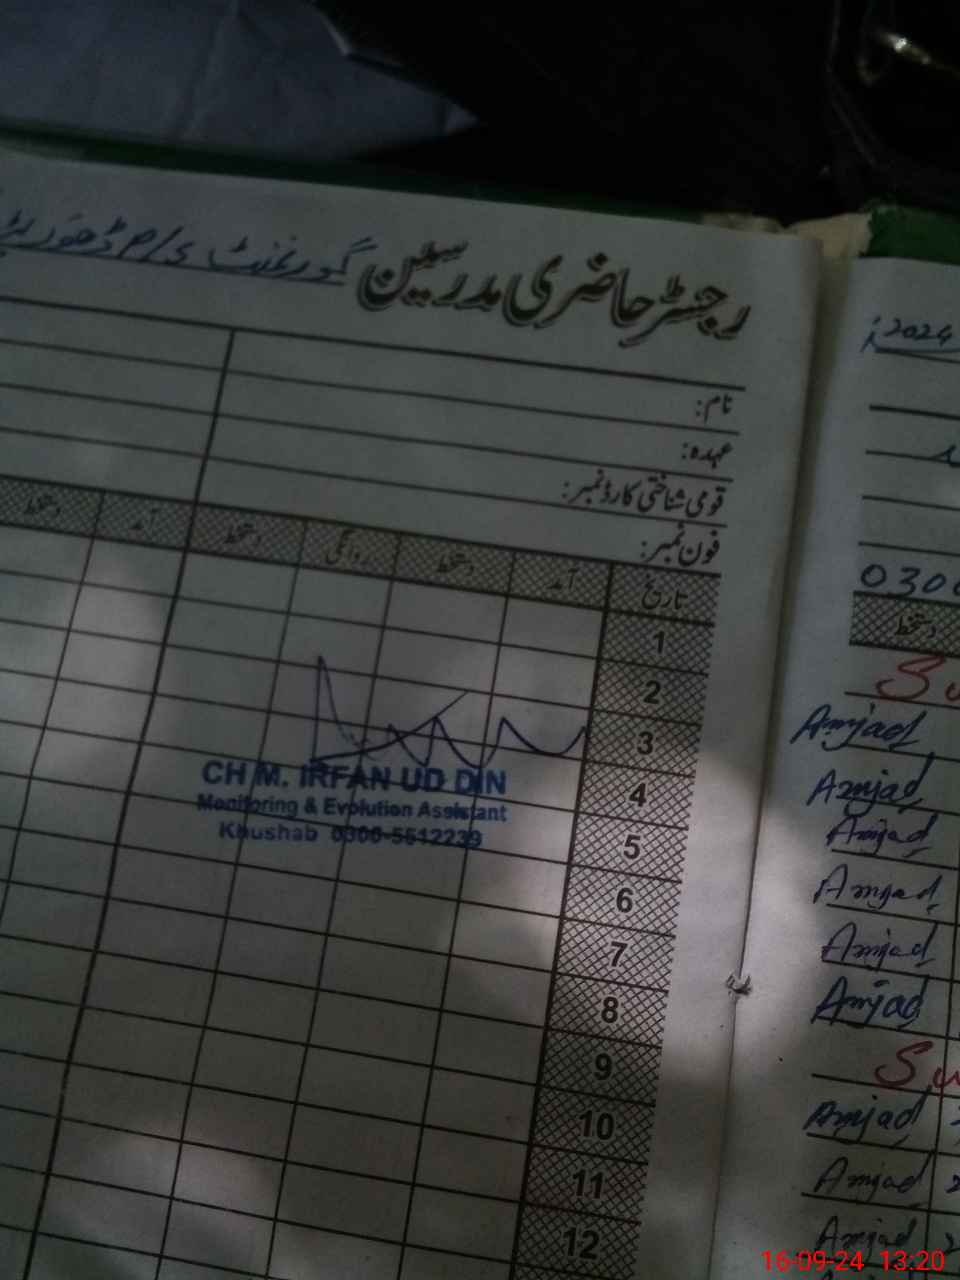 رجسٹر حاضری مدرسین گورنمنٹ
نام:
عہدہ:
قومی شناختی کارڈ نمبر:
فون نمبر:
تاریخ آمد دستخط روانگی دستخط آمد دستخط
1
2
3
4
5
6
7
8
9
10
11
12
CH M. IRFAN UD DIN
Monitoring & Evolution Assistant
Khushab 0300-5612239
2024
0300
دستخط
Amjad
Amjad
Amjad
Amjad
Amjad
Amjad
Amjad
Amjad
Amjad
16-09-24 13:20